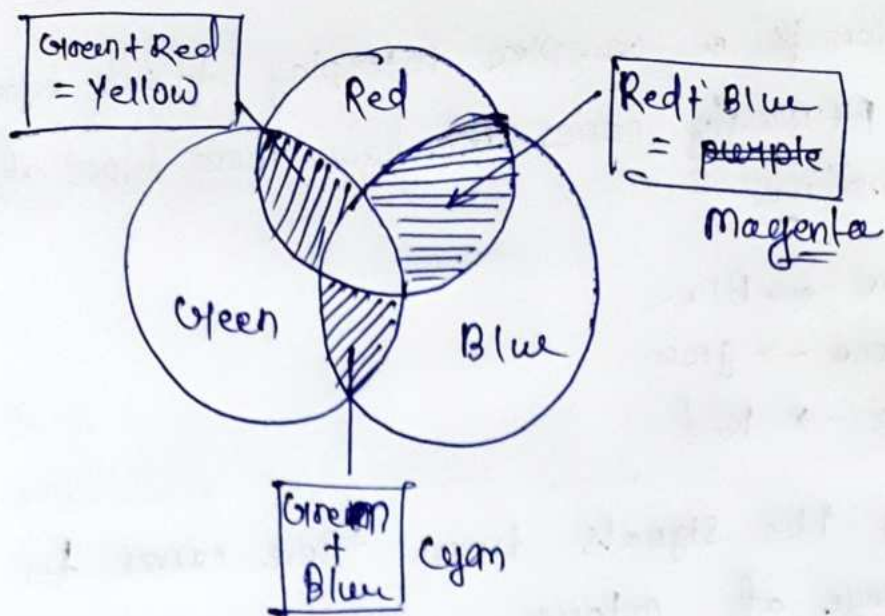 Green + Red
= Yellow
Red
Red + Blue
= purple
Magenta
Green
Blue
Green
+
Blue
Cyan